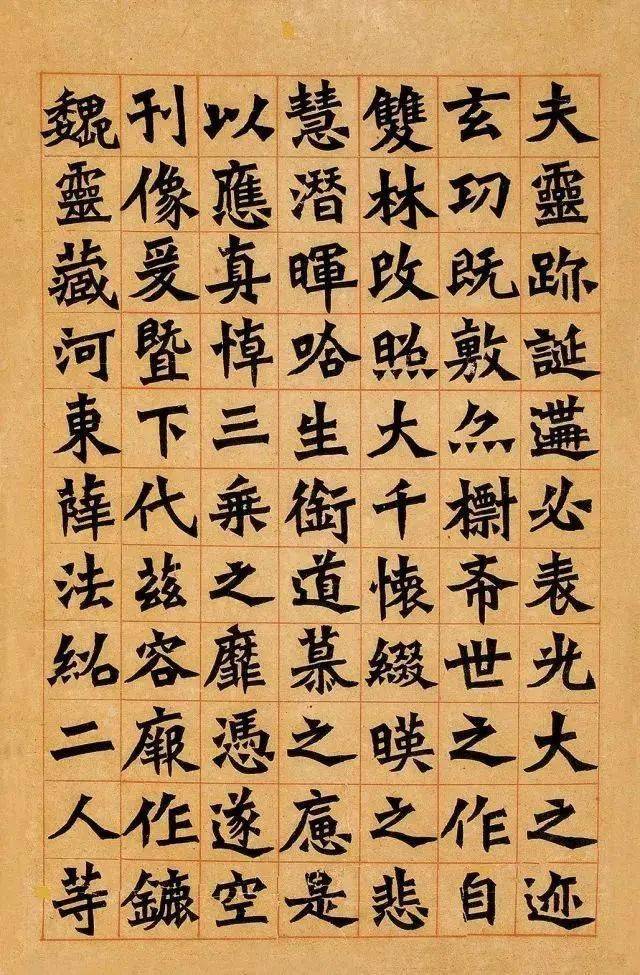 夫靈跡誕遘必表光大之迹
玄功既敷亦標希世之作自
雙林改照大千懷綴暎之悲
慧潜暉唅生銜道慕之痛是
以應真悼三乘之靡憑遂空
刊像爰暨下代茲容厥作鏕
魏靈藏河東薛法紹二人等